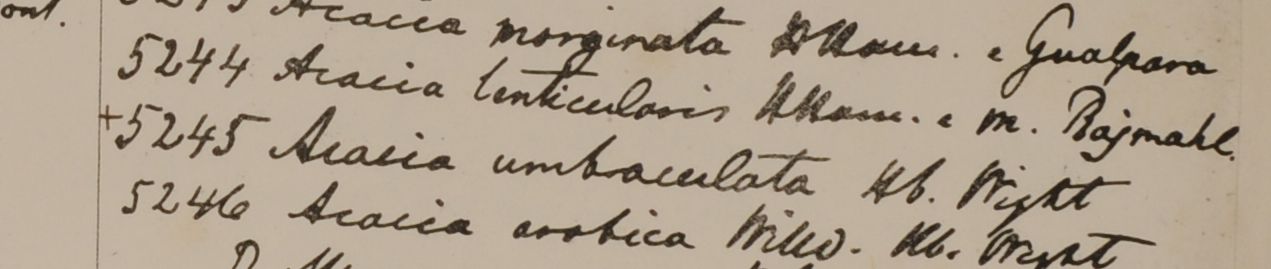 ont.
Acacia marginata HHam. e Gualpara
5244 Acacia lenticularis HHam. e m. Rajmahl.
+5245 Acacia umbraculata Hb. Wight
5246 Acacia arabica Willd. Hb. Wight